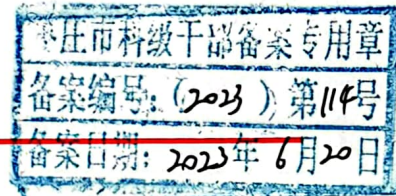 枣庄市科级干部备案专用章
备案编号:(2023)第114号
备案日期:2023年6月20日